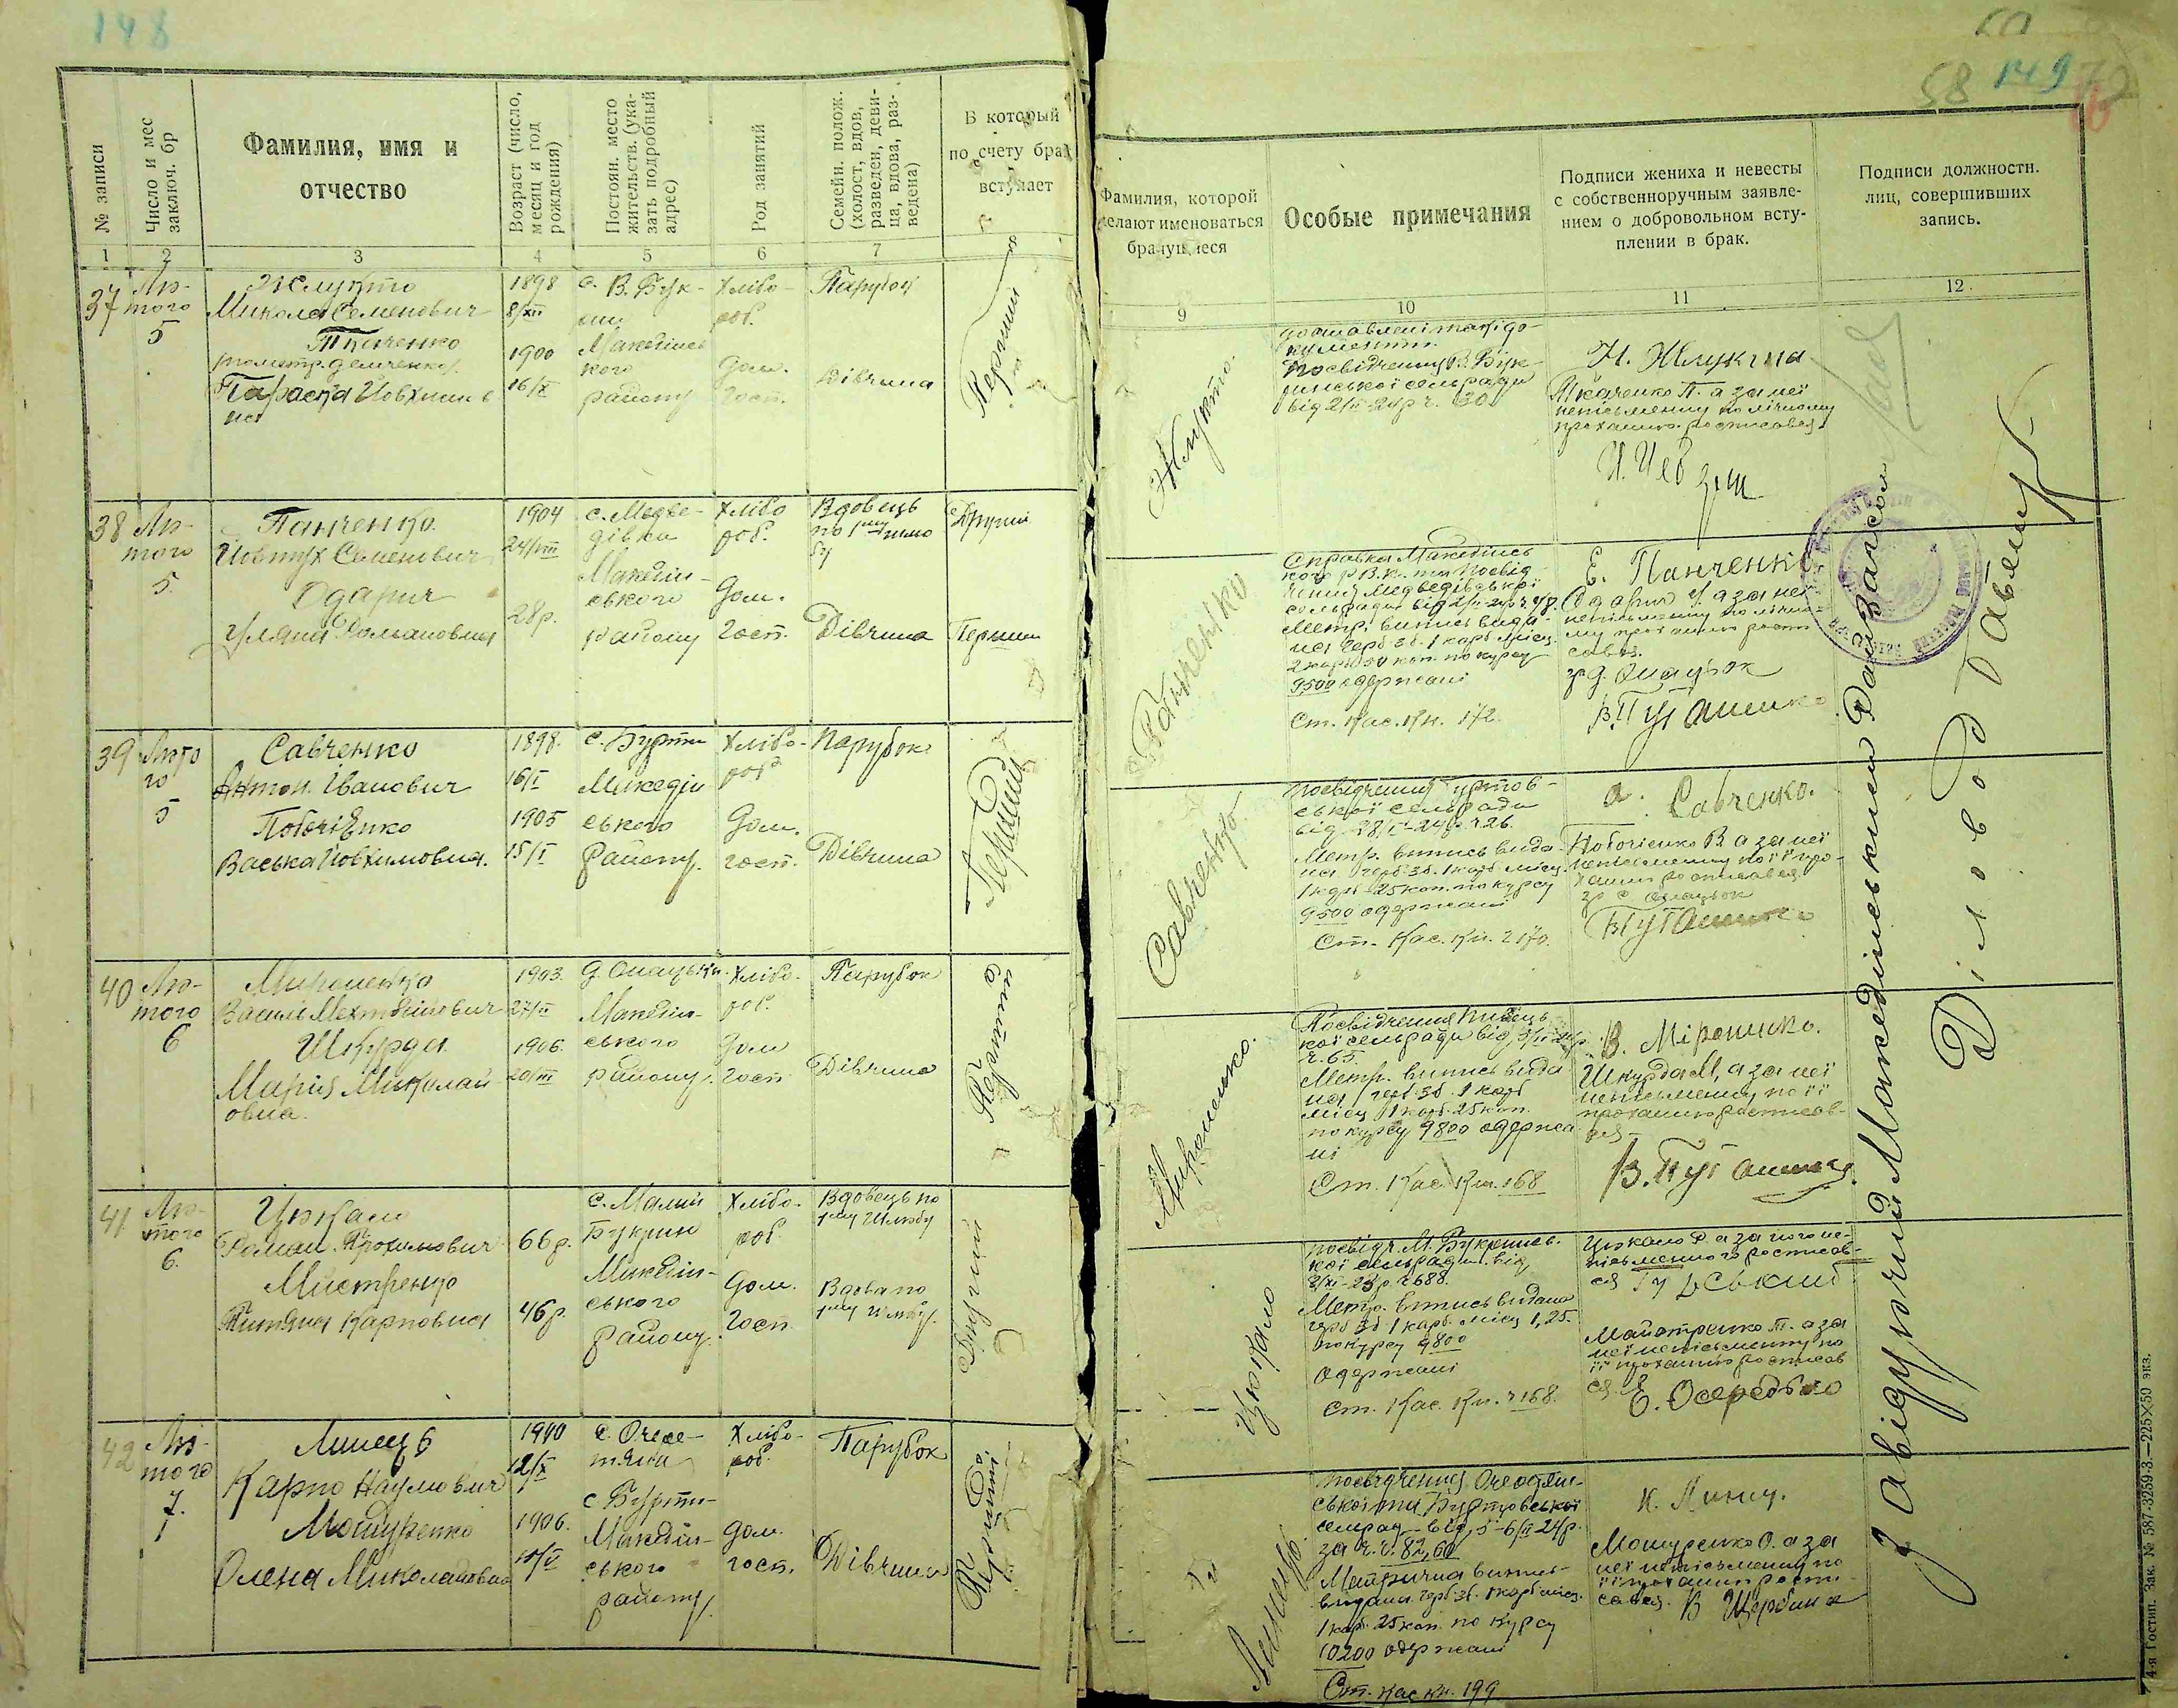 148
№ записи
Число и мес
заключ. бр
Фамилия, имя и
отчество
Возраст (число,
месяц и год
рождения)
Постоян. место
жительств. (ука-
зать подробный
адрес)
Род занятий
Семейн. полож.
(холост, вдов,
разведен, деви-
ца, вдова, раз-
ведена)
В который
по счету бра
вступает
1
2
3
4
5
6
7
37
Лю-
того
5
Жлукто
Микола Семенович
Ткаченко
Параска Йовхимів
на
1898
8/XII
1900
16/X
с. В. Бук-
рин
Македінсь
кого
району
Хлібо-
роб.
Дом.
Госп.
Парубок
Дівчина
Перший
38
Лю-
того
5.
Панченко
Йовтух Семенович
Одарич
Уляна Романовна
1904
24/VIII
28р.
с. Медве-
дівки
Македін-
ського
району
Хлібо
роб.
Дом.
Госп.
Вдовець
по 1му шлю
бу
Дівчина
Другий
Перший
39
Люто
го
5
Савченко
Антон Іванович
Побочієнко
Васька Йовхимовна.
1898.
16/I
1905
15/I
с. Бурти
Македін
ського
Району.
Хлібо-
роб
Дом.
госп.
Парубок
Дівчина
Перший
40
Лю-
того
6
Мироненко
Василь Мехтодійович
Шкурда
Марія Миколай
овна.
1903.
27/II
1906.
20/III
Македін-
ського
району.
Хлібо-
роб.
Дом
Госп
Парубок
Дівчина
Перший
41
Лю-
того
6.
Цюкало
Роман Прохимович
Мистренко
Титяна Карповна
66р.
46р.
с. Малий
Букрин
Македін-
ського
Району.
Хлібо-
роб
Дом.
Госп.
Вдовець по
1му Шлюбу
Вдова по
1му шлюбу.
Другий
42
Лю-
того
7.
Линець
Карпо Наумович
Мошуренко
Олена Миколайовна
1900
12/X
1906.
10/V
с. Очере-
тяни
с Бурти-
Македін-
ського
району.
Хлібо-
роб.
Дом.
госп.
Парубок
Дівчина
Перший.
58 149
Фамилия, которой
желают именоваться
брачущиеся
Особые примечания
Подписи жениха и невесты
с собственноручным заявле-
нием о добровольном всту-
плении в брак.
Подписи должностн.
лиц, совершивших
запись.
9
10
11
12
Жлукто.
доставлені такі до-
кументи.
Посвідчення В. Бук-
ринської сельради
від 2/II-24р ч. 30
Н. Жлукта
Ткаченко П. а за неї
неписьменну по лічному
проханню росписався
Панченко
Справка Македінсь
кого Р.В.К. та Посвід
чення Медведівської
Метр. випись вида-
на герб зб. 1 карб місц.
2 карб 50 коп. по курсу
9500 одержані
Ст. Кас. Кн. 172.
Е. Панченко
Одарич У а за неї
неписьменну по лічно-
му проханню роспи
сався.
Савченко.
Посвідчення Буртов-
ської сельради
від 28/I-24р. ч 26.
Метр. випись вида-
на герб. зб. 1 карб місц.
1 карб 25 коп. по курсу
9500 одержані
Ст. Кас. Кн. 2170.
а. Савченко.
Побочієнко В а за неї
неписьменну по її про-
ханню росписався
Мироненко.
ч. 65.
Метр. випись вида
на герб. зб. 1 карб
місц 1 карб. 25 коп.
по курсу 9800 одержа
ні
Ст. Кас. Кн. 168
В. Міроненко.
Шкурда М, а за неї
неписьменну по її
проханню росписав-
ся
Цюкало
посвідч. М. Букринсь-
кої сельради від
ч 688.
Метр. випись видана
герб зб 1 карб. місц 1,25.
по курсу 9800
одержані
Ст. Кас. Кн. ч 168.
Цюкало Р а за його не-
письменного росписав-
ся
Майстренко Т. а за
неї неписьменну по
її проханню росписав
ся
Е. Осередько
Линець.
Посвідчення Очеретян-
ської та Буртовської
сельрад від 5-6/II 24р.
за ч.ч. 82, 60
Метрична випись
видана герб зб. 1 карб місц.
1 карб. 25 коп. по курсу
10200 одержані
Ст. Кас Кн. 199
К. Линец.
Мошуренко О. а за
неї неписьменну по
її проханню роспи-
сався. В Щербина
Завідуючий Македінським
Діловод
4-я Гостип. Зак. № 587-3259-3.—225×50 экз.